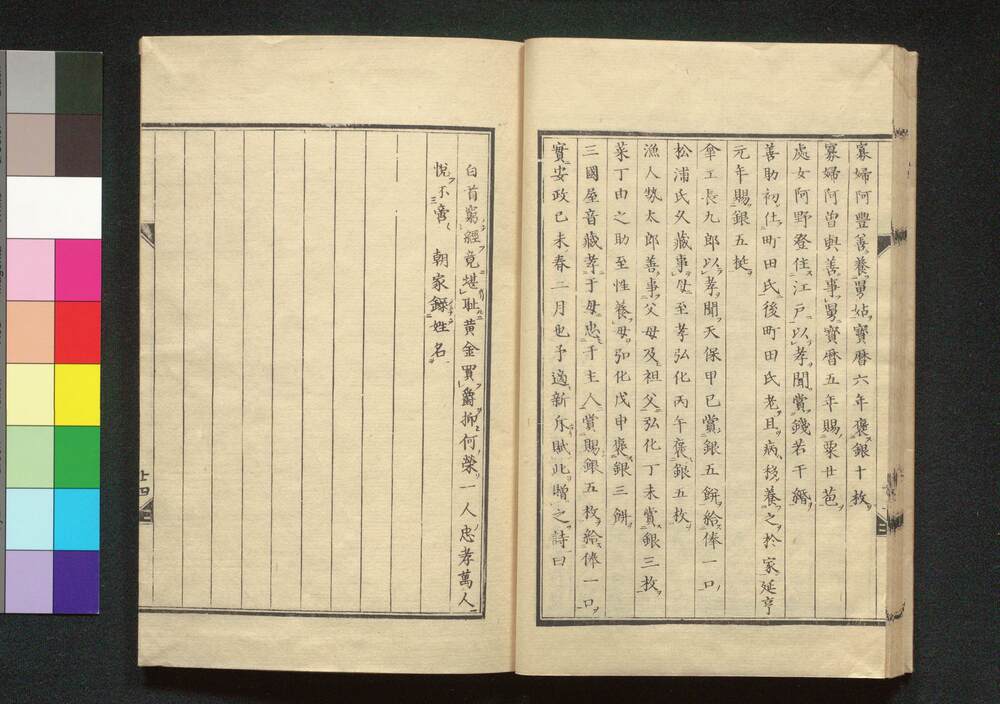 寡婦阿豐善養舅姑寶暦六年褒銀十枚
寡婦阿曽與善事舅寶暦五年賜粟廿苞
處女阿野登住江戸以孝聞賞錢若干緡
善助初仕町田氏後町田氏老且病移養之於家延亨
元年賜銀五挺
傘工長九郎以孝聞天保甲巳賞銀五餅給俸一口
松浦氏久藏事母至孝弘化丙午褒銀五枚
漁人勢太郎善事父母及祖父弘化丁未賞銀三枚
菜丁由之助至性養母弘化戊申褒銀三餅
三國屋音藏孝于母忠于主人賞賜銀五枚給俸一口
實安政己未春二月也予適新斥賦此贈之詩曰
白首窮經竟堪耻黄金買爵抑何榮一人忠孝萬人
悅不啻朝家錄姓名
廿四